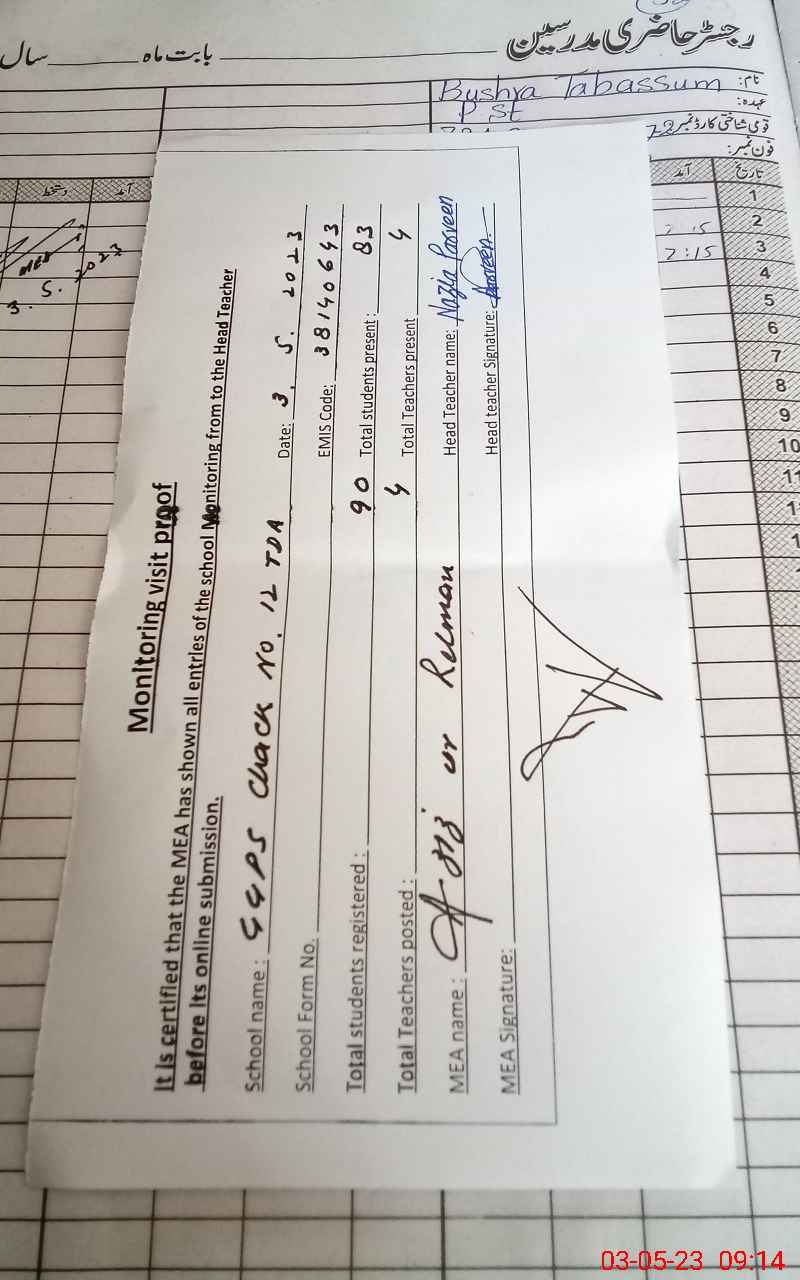 رجسٹر حاضری مدرسین
بابت ماه سال
نام: Bushra Tabassum
عہدہ: PST
قومی شناختی کارڈ نمبر
فون نمبر:
تاریخ آمد
آمد دستخط
1
2
3 7:15
4
5
6
7
8
9
10
MEA
3. 5. 2023
Monitoring visit proof
It is certified that the MEA has shown all entries of the school Monitoring from to the Head Teacher
before its online submission.
School name: GGPS Chack No. 12 TDA Date: 3. 5. 2023
School Form No. EMIS Code: 38140643
Total students registered: 90 Total students present: 83
Total Teachers posted: 4 Total Teachers present 4
MEA name: Aziz ur Rehman Head Teacher name: Nazia Parveen
MEA Signature: Head teacher Signature: Parveen
03-05-23 09:14